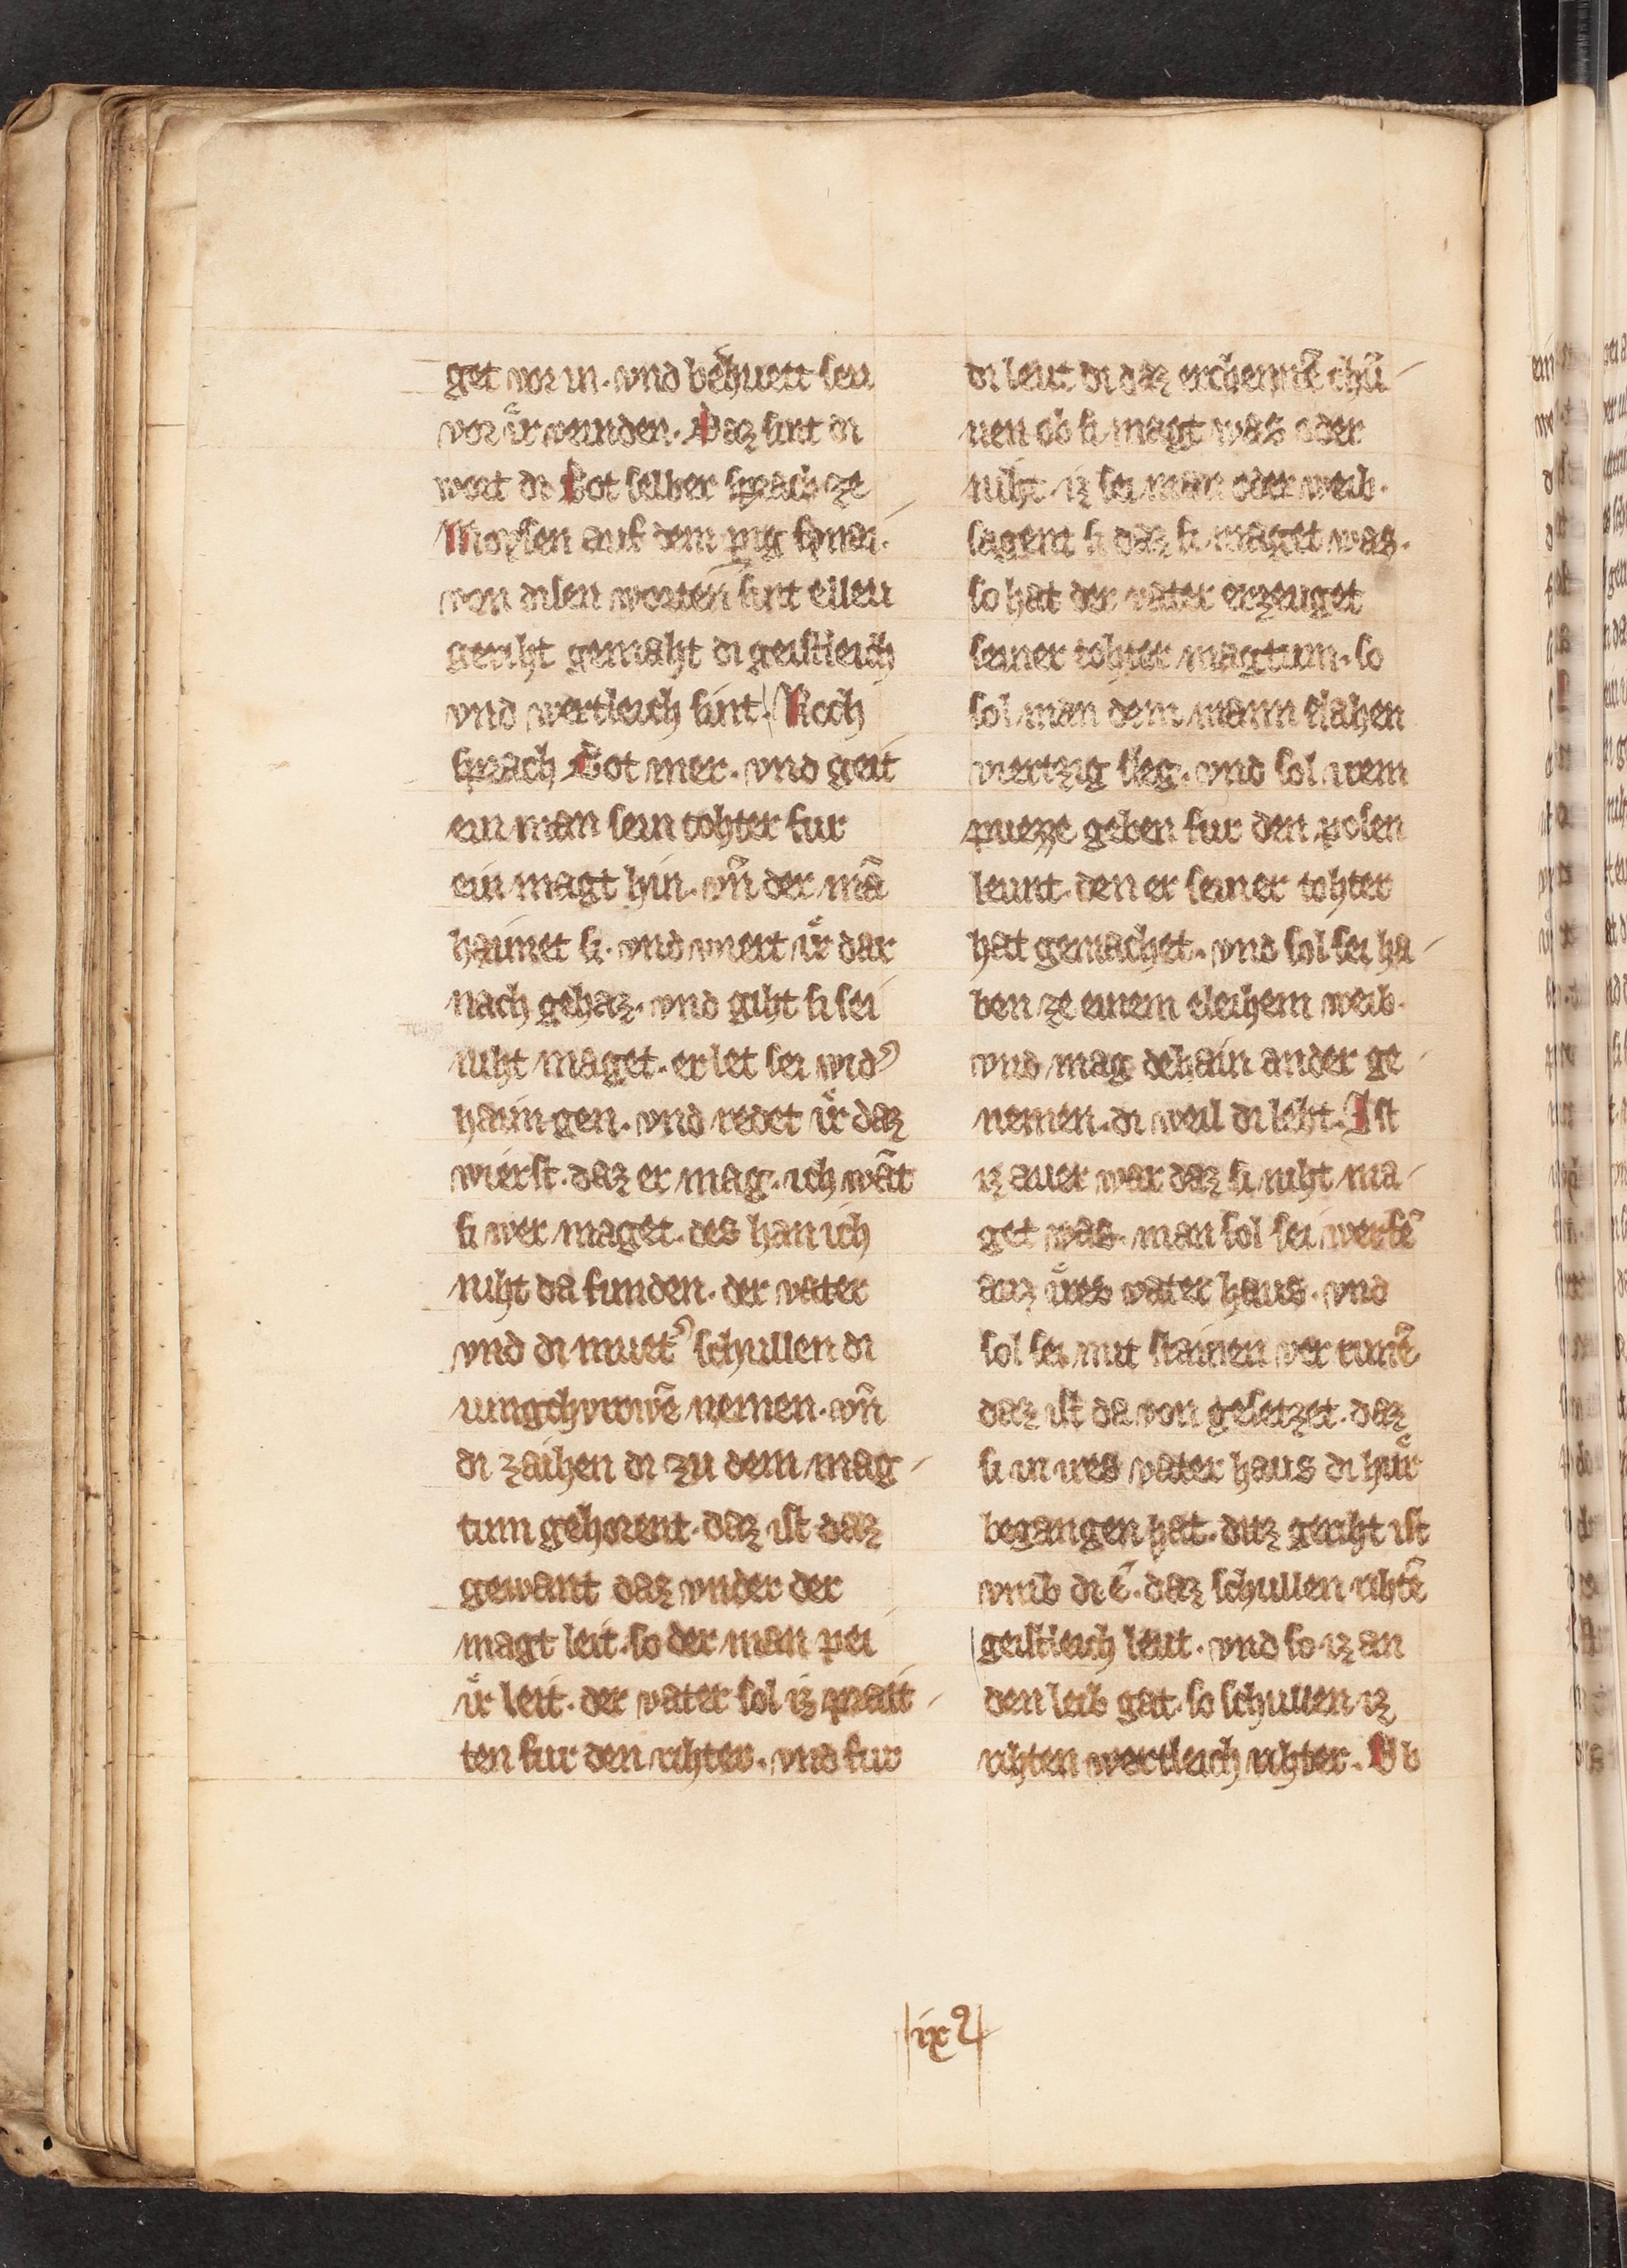 get vor in. vnd behuett seu
vor iͤr veinden. Daz sint di
wort di Got selber sprach ze
Moysen auf dem perg synai.
von disen worten sint elleu
geriht gemaht di geistleich
vnd wertleich sint. Noch
sprach Got mer. vnd geit
ein man sein tohter fur
ein magt hin. vn̄ der mā
haimet si. vnd wiert iͤr dar
nach gehaz. vnd giht si sei
niht maget. er let sei wid᾽
haim gen. vnd redet iͤr daz
wierst. daz er mag. ich wāt
si wer maget. des han ich
niht da funden. der vater
vnd di muet᾽ schullen di
iungchvrowē nemen. vn̄
di zaihen di zu dem mag-
tum gehorent. daz ist daz
gewant daz vnder der
magt leit. so der man pei
iͤr leit. der vater sol iz prait-
ten fur den rihter. vnd fur
di leut di daz erchennē chū-
nen ob si magt was oder
niht. iz sei man oder weib.
sagent si daz si maget was.
so hat der vater erzeuget
seiner tohter magtum. so
sol man dem mann slahen
viertzig sleg. vnd sol wem
puezze geben fur den posen
leunt. den er seiner tohter
hat gemachet. vnd sol sei ha-
ben ze einem eleihem weib.
vnd mag dehain ander ge-
nemen. di weil di lebt. Ist
iz auer war daz si niht ma-
get was. man sol sei werfē
auz iͤres vater haus. vnd
sol sei mit stainen ver runē
daz ist da von gesetzet. daz
si in ires vater haus di huͤr
begangen hat. ditz geriht ist
vmb di ē. daz schullen rihtē
geistleich leut. vnd so iz an
den leib gat. so schullen iz
rihten wertleich rihter. Ob
ix